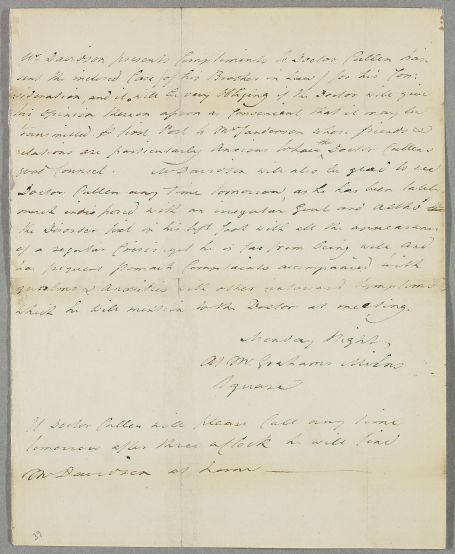 Mr. Davidson presents Compliments to Doctor Cullen has
sent the inclosed Case of his Brother in Law for his Con-
sideration, and it will be very Obliging if the Doctor will give
his Opinion thereon as soon as Convenient, that it may be
transmitted first Post to Mr. Sanderson whose friends &
relations are particularly Anxious to have the Doctor Cullens
good Counsel. Mr Davidson will also be glad to see
Doctor Cullen any time tomorrow, as he has been late
much indisposed with an irregular Gout and altho
the Disorder fixt in his left foot with all the appearance
of a regular Crisis, yet he is far from being well and
has frequent Stomach Complaints accompanied with
qualms & Anxieties with other untoward Symptoms
which he will mention to the Doctor at meeting.
Monday Night
At Mr. Grahams Milns
Square
If Doctor Cullen will please Call any time
tomorrow after three a Clock he will find
Mr Davidson at home
39